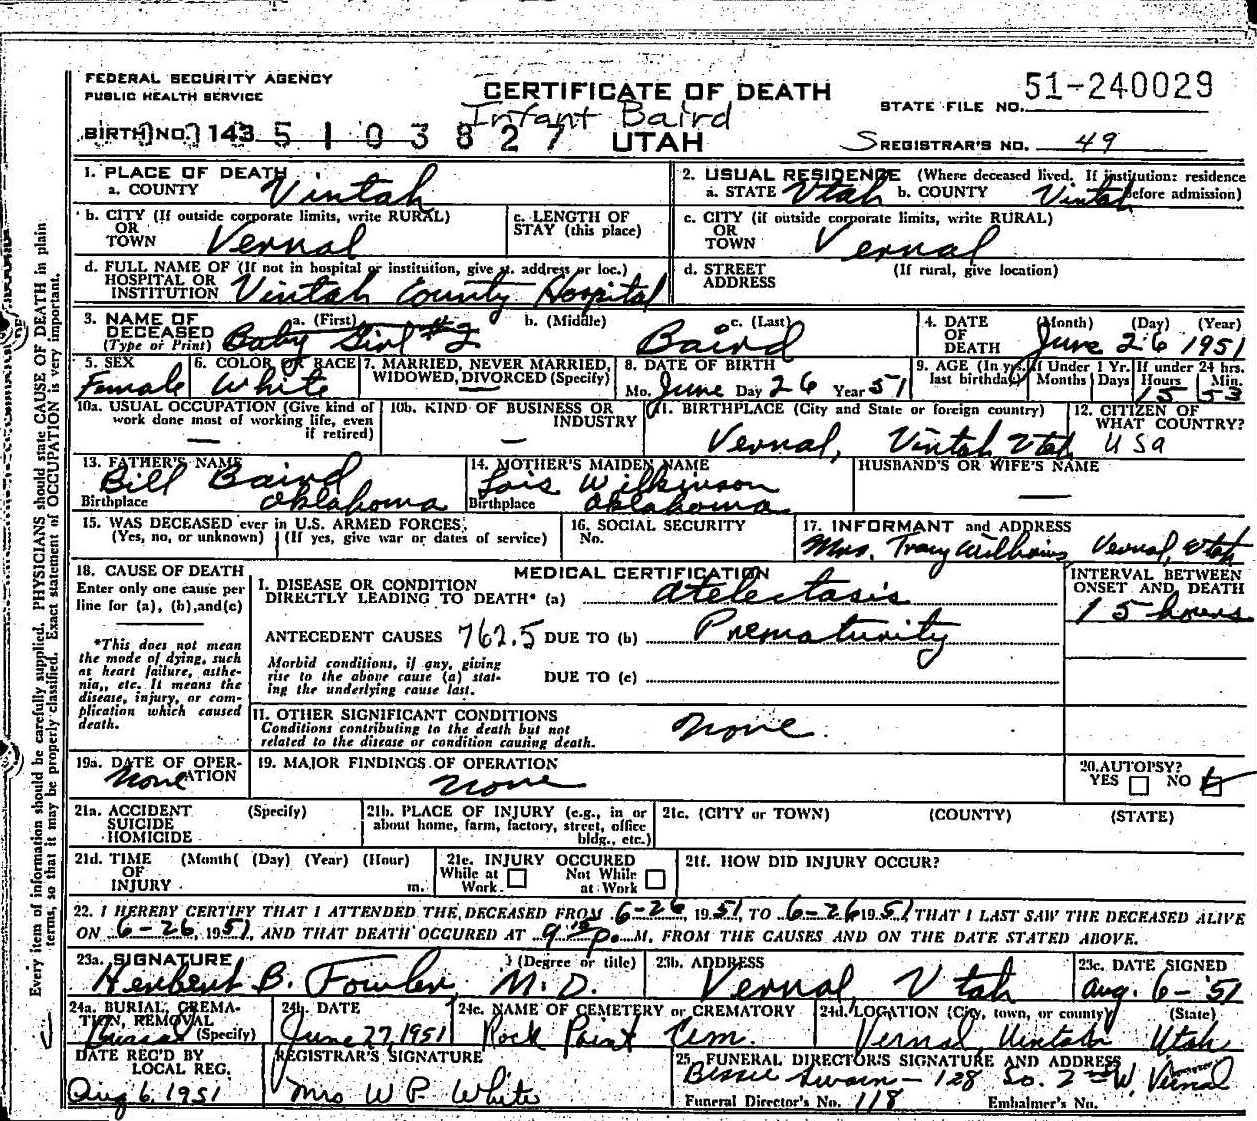 FEDERAL SECURITY AGENCY
PUBLIC HEALTH SERVICE
CERTIFICATE OF DEATH
Infant Baird
UTAH
STATE FILE NO. 51-240029
BIRTH NO. 143 5 1 0 3 8 2 7
REGISTRAR'S NO. 49
1. PLACE OF DEATH
a. COUNTY Uintah
2. USUAL RESIDENCE (Where deceased lived. If institution: residence before admission)
a. STATE Utah b. COUNTY Uintah
b. CITY (If outside corporate limits, write RURAL)
OR
TOWN Vernal
c. LENGTH OF
STAY (this place)
c. CITY (if outside corporate limits, write RURAL)
OR
TOWN Vernal
d. FULL NAME OF (If not in hospital or institution, give st. address or loc.)
HOSPITAL OR
INSTITUTION Uintah County Hospital
d. STREET
ADDRESS
(If rural, give location)
3. NAME OF
DECEASED
(Type or Print)
a. (First) Baby Girl #2
b. (Middle)
c. (Last) Baird
4. DATE
OF
DEATH
(Month) (Day) (Year)
June 26 1951
5. SEX
Female
6. COLOR OR RACE
White
7. MARRIED, NEVER MARRIED,
WIDOWED, DIVORCED (Specify)
8. DATE OF BIRTH
Mo. June Day 26 Year 51
9. AGE (In yrs. last birthday)
If Under 1 Yr.
Months Days
If under 24 hrs.
Hours Min.
15 53
10a. USUAL OCCUPATION (Give kind of
work done most of working life, even
if retired)
—
10b. KIND OF BUSINESS OR
INDUSTRY
—
11. BIRTHPLACE (City and State or foreign country)
Vernal, Uintah Utah
12. CITIZEN OF
WHAT COUNTRY?
USA
13. FATHER'S NAME
Bill Baird
Birthplace Oklahoma
14. MOTHER'S MAIDEN NAME
Lois Wilkinson
Birthplace Oklahoma
HUSBAND'S OR WIFE'S NAME
—
15. WAS DECEASED ever in U.S. ARMED FORCES,
(Yes, no, or unknown) (If yes, give war or dates of service)
16. SOCIAL SECURITY
No.
17. INFORMANT and ADDRESS
Mrs. Tracy Vernal, Utah
18. CAUSE OF DEATH
Enter only one cause per
line for (a), (b), and (c)
*This does not mean
the mode of dying, such
as heart failure, asthe-
nia,, etc. It means the
disease, injury, or com-
plication which caused
death.
MEDICAL CERTIFICATION
I. DISEASE OR CONDITION
DIRECTLY LEADING TO DEATH* (a) Atelectasis
ANTECEDENT CAUSES 762.5 DUE TO (b) Prematurity
Morbid conditions, if any, giving
rise to the above cause (a) stat-
ing the underlying cause last.
DUE TO (c)
INTERVAL BETWEEN
ONSET AND DEATH
15 hours
II. OTHER SIGNIFICANT CONDITIONS
Conditions contributing to the death but not
related to the disease or condition causing death.
None
19a. DATE OF OPER-
ATION
None
19. MAJOR FINDINGS OF OPERATION
None
20. AUTOPSY?
YES NO
21a. ACCIDENT
SUICIDE
HOMICIDE
(Specify)
21b. PLACE OF INJURY (e.g., in or
about home, farm, factory, street, office
bldg., etc.)
21c. (CITY or TOWN) (COUNTY) (STATE)
21d. TIME (Month( (Day) (Year) (Hour)
OF
INJURY m.
21e. INJURY OCCURED
While at
Work
Not While
at Work
21f. HOW DID INJURY OCCUR?
22. I HEREBY CERTIFY THAT I ATTENDED THE DECEASED FROM 6-26, 1951 TO 6-26 1951 THAT I LAST SAW THE DECEASED ALIVE
ON 6-26, 1951, AND THAT DEATH OCCURED AT P.M. FROM THE CAUSES AND ON THE DATE STATED ABOVE.
23a. SIGNATURE (Degree or title)
Herbert B. Fowler M.D.
23b. ADDRESS
Vernal, Utah
23c. DATE SIGNED
Aug. 6-51
24a. BURIAL, CREMA-
TION, REMOVAL
(Specify)
Burial
24b. DATE
June 27, 1951
24c. NAME OF CEMETERY or CREMATORY
Rock Point Cem.
24d. LOCATION (City, town, or county) (State)
Vernal, Uintah Utah
DATE REC'D BY
LOCAL REG.
Aug 6, 1951
REGISTRAR'S SIGNATURE
Mrs W P White
25. FUNERAL DIRECTOR'S SIGNATURE AND ADDRESS
Bessie Swain - 128 So. 2nd W. Vernal
Funeral Director's No. 118 Embalmer's No.
Every item of information should be carefully supplied. PHYSICIANS should state CAUSE OF DEATH in plain
terms, so that it may be properly classified. Exact statement of OCCUPATION is very important.